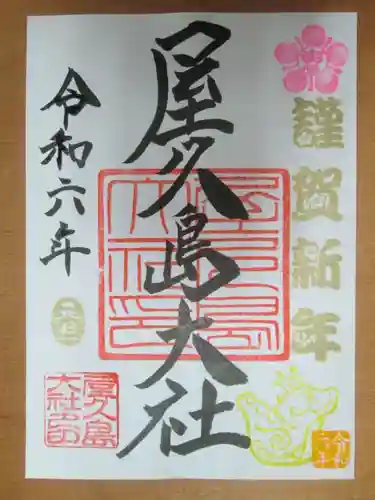 謹賀新年
屋久島大社
令和六年
元旦
屋久島
大社之印